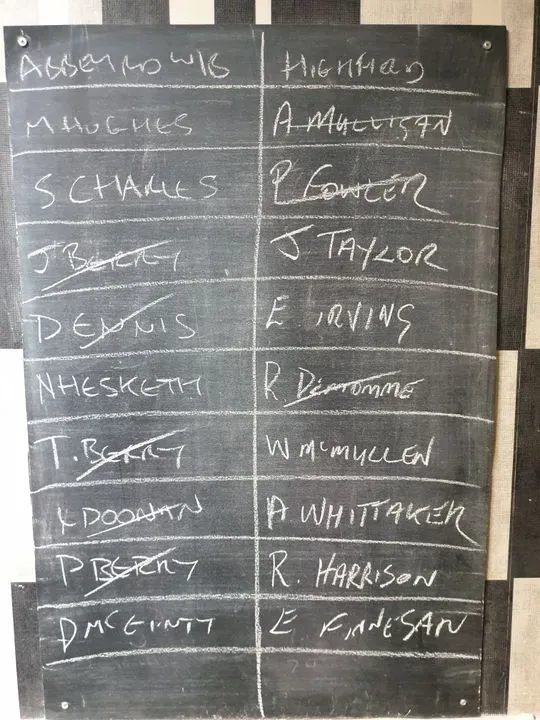 ABBEY HO WB HIGHFIELD
M HUGHES A MULLIGAN
S CHARLES P FOWLER
J BERRY J TAYLOR
DENNIS E IRVING
N HESKETH R
T. BERRY W McMULLEN
K DOONAN A WHITTAKER
P BERRY R. HARRISON
D McGINTY E FINNEGAN